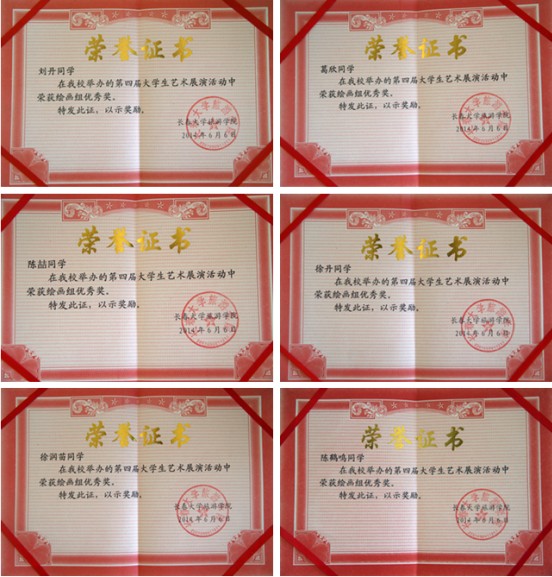 荣誉证书
刘丹同学
在我校举办的第四届大学生艺术展演活动中
荣获绘画组优秀奖。
特发此证，以示奖励。
长春大学旅游学院
2014年6月6日
荣誉证书
葛欣同学
在我校举办的第四届大学生艺术展演活动中
荣获绘画组优秀奖。
特发此证，以示奖励。
长春大学旅游学院
2014年6月6日
荣誉证书
陈喆同学
在我校举办的第四届大学生艺术展演活动中
荣获绘画组优秀奖。
特发此证，以示奖励。
长春大学旅游学院
2014年6月6日
荣誉证书
徐丹同学
在我校举办的第四届大学生艺术展演活动中
荣获绘画组优秀奖。
特发此证，以示奖励。
长春大学旅游学院
2014年6月6日
荣誉证书
徐润苗同学
在我校举办的第四届大学生艺术展演活动中
荣获绘画组优秀奖。
特发此证，以示奖励。
长春大学旅游学院
2014年6月6日
荣誉证书
陈鹤鸣同学
在我校举办的第四届大学生艺术展演活动中
荣获绘画组优秀奖。
特发此证，以示奖励。
长春大学旅游学院
2014年6月6日